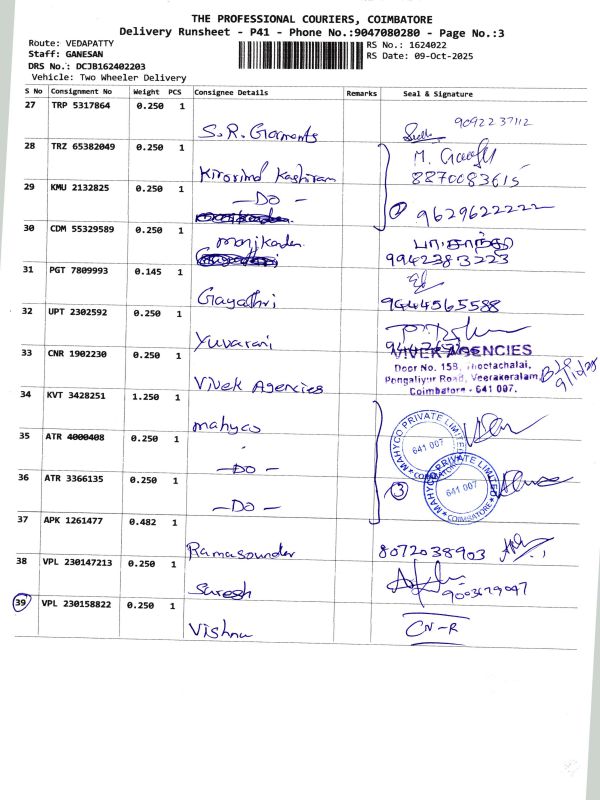 THE PROFESSIONAL COURIERS, COIMBATORE
Delivery Runsheet - P41 - Phone No.:9047080280 - Page No.:3
Route: VEDAPATTY
Staff: GANESAN
DRS No.: DCJB162402203
Vehicle: Two Wheeler Delivery
RS No.: 1624022
RS Date: 09-Oct-2025
S No Consignment No Weight PCS Consignee Details Remarks Seal & Signature
27 TRP 5317864 0.250 1 S.R. Garments 9092237112
28 TRZ 65382049 0.250 1 Kirovind Kashiram 8870083615
29 KMU 2132825 0.250 1 -DO- 9629622222
30 CDM 55329589 0.250 1 manikanden 9942383223
31 PGT 7809993 0.145 1 Gayathri 9444565588
32 UPT 2302592 0.250 1 Yuvarani
33 CNR 1902230 0.250 1 Vivek Agencies
VIVEK AGENCIES
Door No. 15B, Thoctachalai,
Pongaliyur Road, Veerakeralam,
Coimbatore - 641 007.
9/10/25
34 KVT 3428251 1.250 1 mahyco
35 ATR 4000408 0.250 1 -DO-
36 ATR 3366135 0.250 1 -DO-
MAHYCO PRIVATE LIMITED
641 007
COIMBATORE
MAHYCO PRIVATE LIMITED
641 007
COIMBATORE
3
37 APK 1261477 0.482 1 Ramasounder 8072038903
38 VPL 230147213 0.250 1 Suresh 9003679047
39 VPL 230158822 0.250 1 Vishnu CN-R